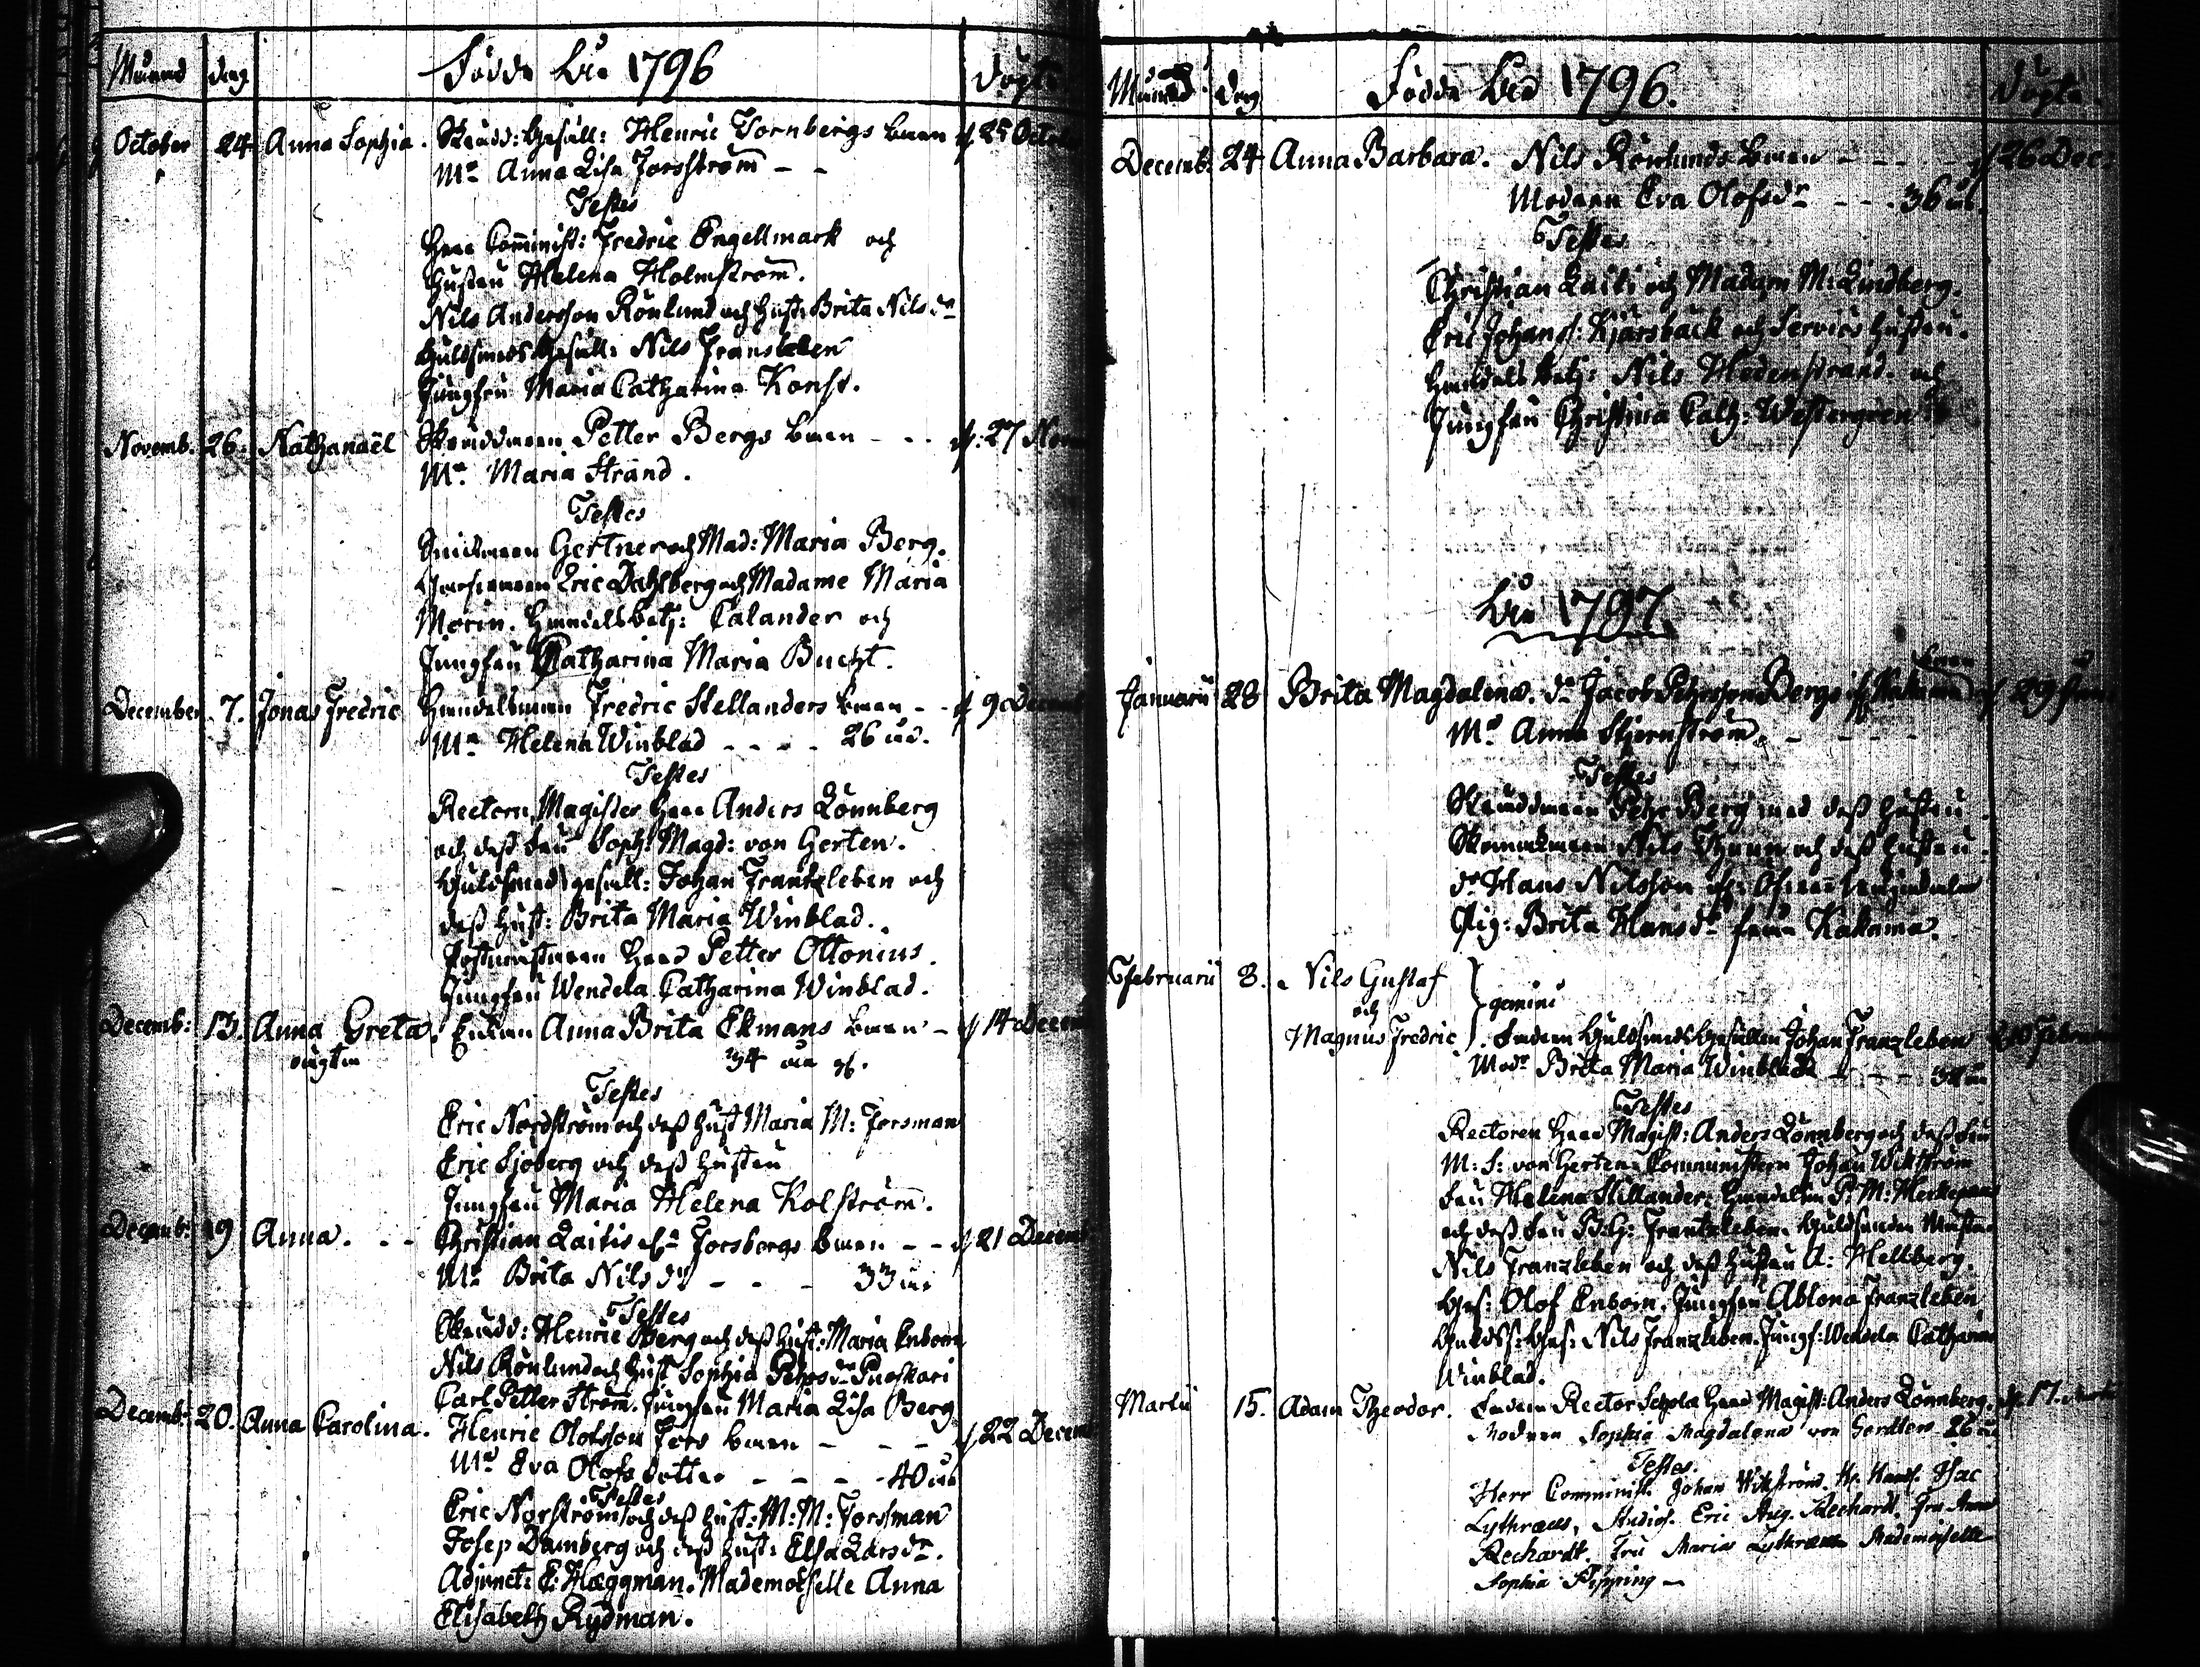 Månad dag Födde åhr 1796 döpte
October 24 Anna Sophia. Skrädd: Gesäll: Henric Tornbergs barn 25 Octob
Mr Anna Lisa Forsström - -
Testes
Herr Comminist: Fredric Engellmark och
Hustru Helena Holmström.
Nils Andersson Rönlund och Hust: Brita Nilsdr
Guldsmeds Gesäll: Nils Fransleben
Jungfru Maria Catharina Konst.
Novemb. 26. Nathanaël Skräddaren Petter Bergs barn - - . 27 Nov
Mr Maria Strand.
Testes
Gertner och Mad: Maria Berg.
Eric Dahlberg och Madame Maria
Morin. Handelsbetj: Calander och
Jungfru Catharina Maria Bucht.
December 7. Jonas Fredric Handelsman Fredric Stellanders barn - - 9 Decemb
Mr Helena Winblad - - - - 26 åhr.
Testes
Rectorn Magister Herr Anders Lönnberg
och dess Fru Soph: Magd: von Gerten.
Guldsmeds gesäll: Johan Frantzleben och
dess Hust: Brita Maria Winblad.
Postmästaren Herr Petter Ottonius.
Jungfru Wendela Catharina Winblad.
Decemb: 13. Anna Greta. Enkan Anna Brita Ekmans barn - 14 Decem
oägta 34 åhr
Testes
Eric Nordström och dess Hust Maria M: Forsman
Eric Sjöberg och dess Hustru
Jungfru Maria Helena Kolström.
Decemb: 19 Anna. - - Christian Laitis Forsbergs barn - - 21 Decemb
Mr Brita Nilsdr - - - 33 åhr
Testes
Skrädd: Henric Berg och dess Hust: Maria Enbom
Nils Rönlund och Hust Sophia Pehrsdr Puoskari
Carl Petter Ström. Jungfru Maria Lisa Berg
Decemb: 20. Anna Carolina. Henric Olofsson Fors barn - - - 22 Decem
Mr Eva Olofsdotter - - - - 40 åhr
Testes
Eric Norström och dess Hust: M: M: Forssman
Josep Damberg och dess Hust: Elsa Larsdr.
Adjunct: E: Hæggman. Mademoiselle Anna
Elisabeth Rydman.
Månad Dag Födde åhr 1796. Döpte
Decemb: 24 Anna Barbara. Nils Rönlunds barn - - - - 26 Dec.
Modren Eva Olofsdr - - - 36 åhr.
Testes
Christian Laiti och Madam M: Lindberg.
Eric Johans: Kjärsbäck och Hustru.
Handels betj: Nils Hedenstrand. och
Jungfru Christina Cath: Westergren
åhr 1797.
Januarii 28 Brita Magdalena. dr Jacob Pehrsson Bergs if: Kakama barn 29 Jan
Mr Anna Stjernström. - - - -
Testes
Skräddaren Pehr Berg med dess hustru
Nils Thun och dess hustru
dr Hans Nilsson
Pig: Brita Hansdr från Kakama.
Februarii 8. Nils Gustaf
och } gemini
Magnus Fredric. Fadern Guldsmeds Gesällen Johan Franzleben 10 Februar
Modr Brita Maria Winblad - - -
Testes
Rectoren Herr Magist: Anders Lönnberg och dess Fru
M: S: von Gerten. Comministern Johan Wikström
Fru Helena Stellander:
och dess Fru B: Frantzleben. Guldsmeden
Nils Franzleben och dess Hustru A: Hellberg.
Ges: Olof Enbom. Jungfru Ablona Franzleben,
Gulds: Ges: Nils Franzleben. Jungf: Wendela Catharina
Winblad.
Martii 15. Adam Theodor. Fadern Rector Scholæ Herr Magist: Anders Lönnberg. 17. Martii
Modren Sophia Magdalena von Gerdten 26 åhr
Testes.
Herr Comminist. Johan Wikström. Hr. Handl. Isac
Lythræus, Studios. Eric Aug. Rechardt. Fru Anna
Rechardt. Fru Maria Lythræus Mademoiselle
Sophia Pipping -